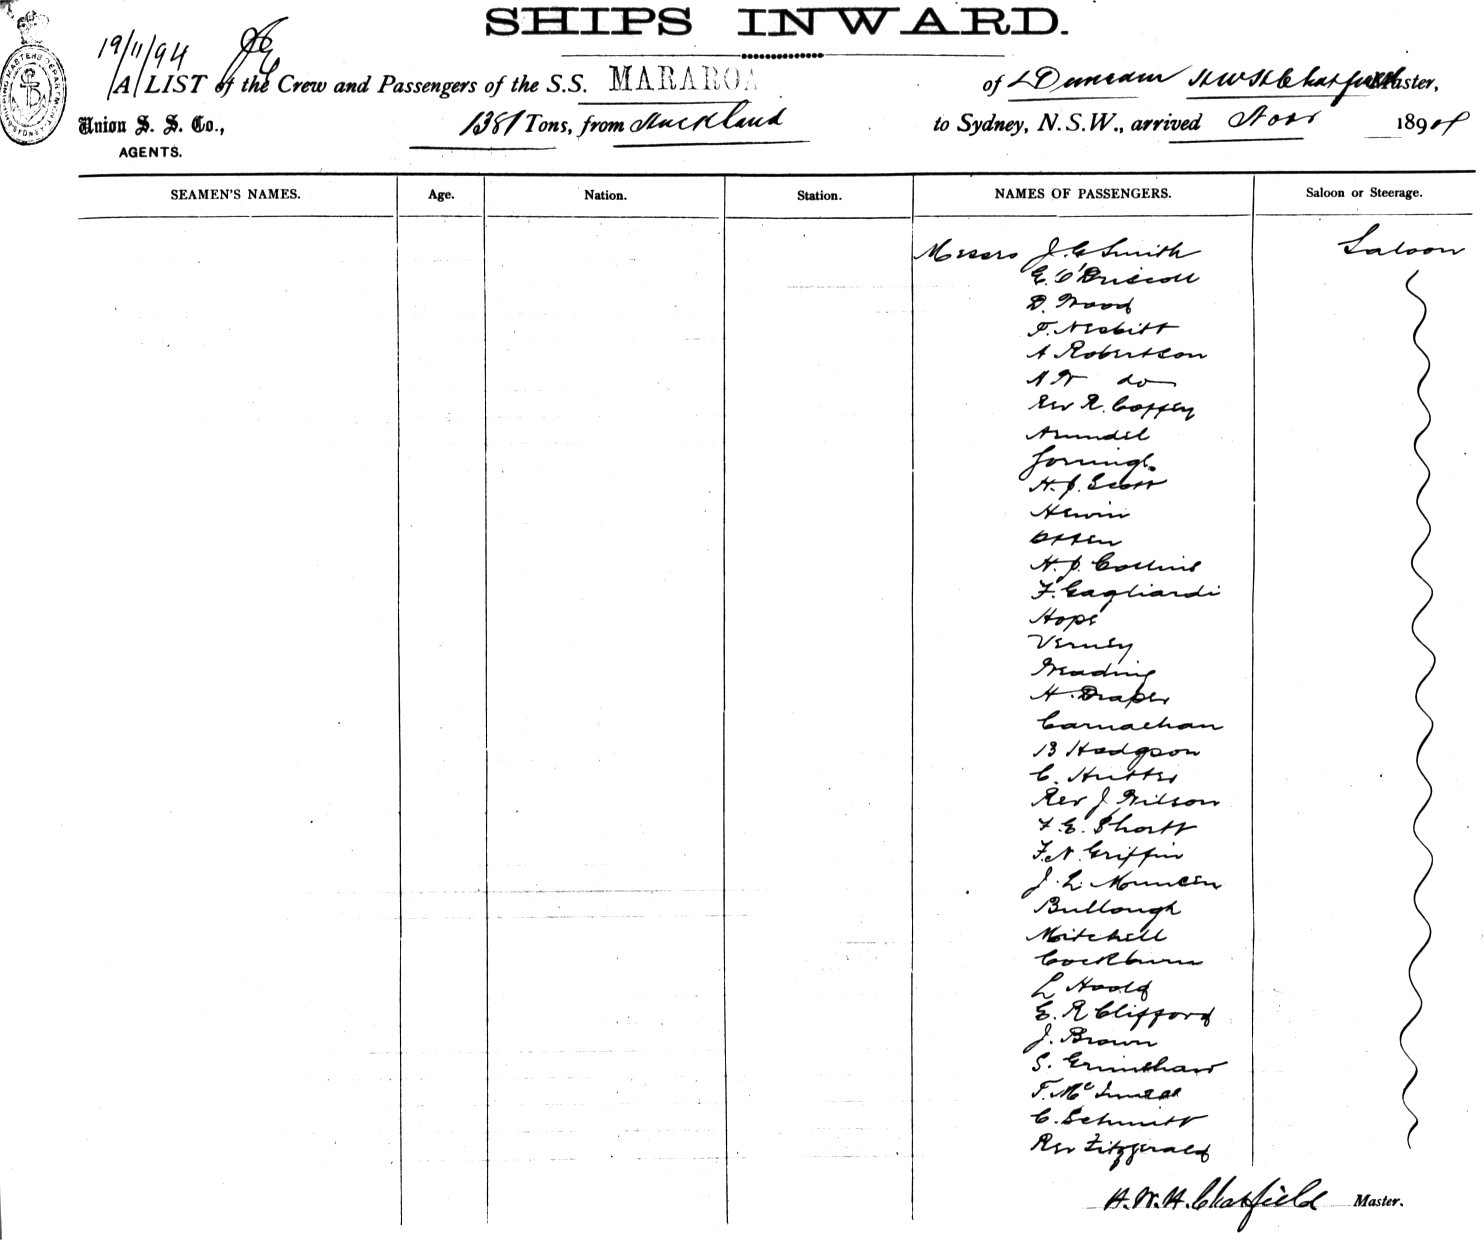 SHIPS INWARD.
19/11/94
(A) LIST of the Crew and Passengers of the S.S. MARAROA of Dunedin H W H Chatfield Master,
Union S. S. Co., 1381 Tons, from Auckland to Sydney, N.S.W., arrived Novr 1894
AGENTS.
SEAMEN'S NAMES. Age. Nation. Station. NAMES OF PASSENGERS. Saloon or Steerage.
Messrs J. G Smith Saloon
E. O'Driscoll
D. Wood
F. Nesbitt
A Robertson
A W do
Rev R. Coffey
Arundel
H. J. Scott
Hewin
Offen
H. J. Collins
F. Gagliardi
Hope
Verney
Weading
H. Draper
Carnachan
B Hodgson
C. Hutter
Rev J Wilson
F. E. Shortt
F. N. Griffin
J. L. Mouncen
Bullough
Mitchell
Cockburn
L Hoold
E. R Clifford
J. Brown
S. Grimshaw
T. Mc
C. Schmitt
Rev Fitzgerald
H. W. H. Chatfield Master.